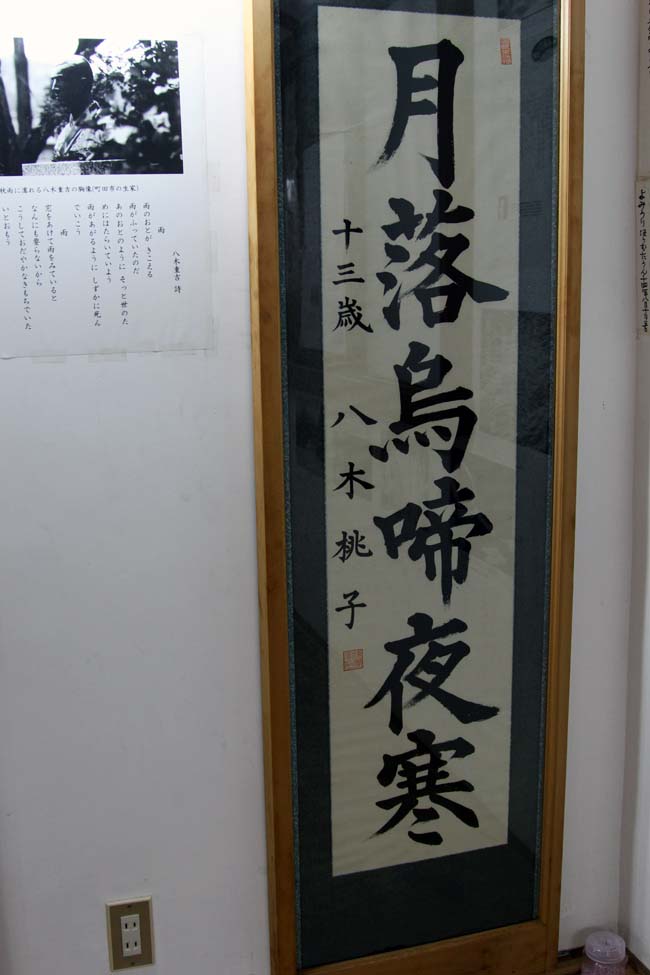 月落烏啼夜寒
十三歳 八木桃子
秋雨に濡れる八木重吉の胸像(町田市の生家)
八木重吉 詩
雨
雨のおとが きこえる
雨がふっていたのだ
あのおとのように そっと世のた
めにはたらいていよう
雨があがるように しずかに死ん
でいこう
雨
窓をあけて雨をみていると
なんにも要らないから
こうしておだやかなきもちでいた
いとおもう